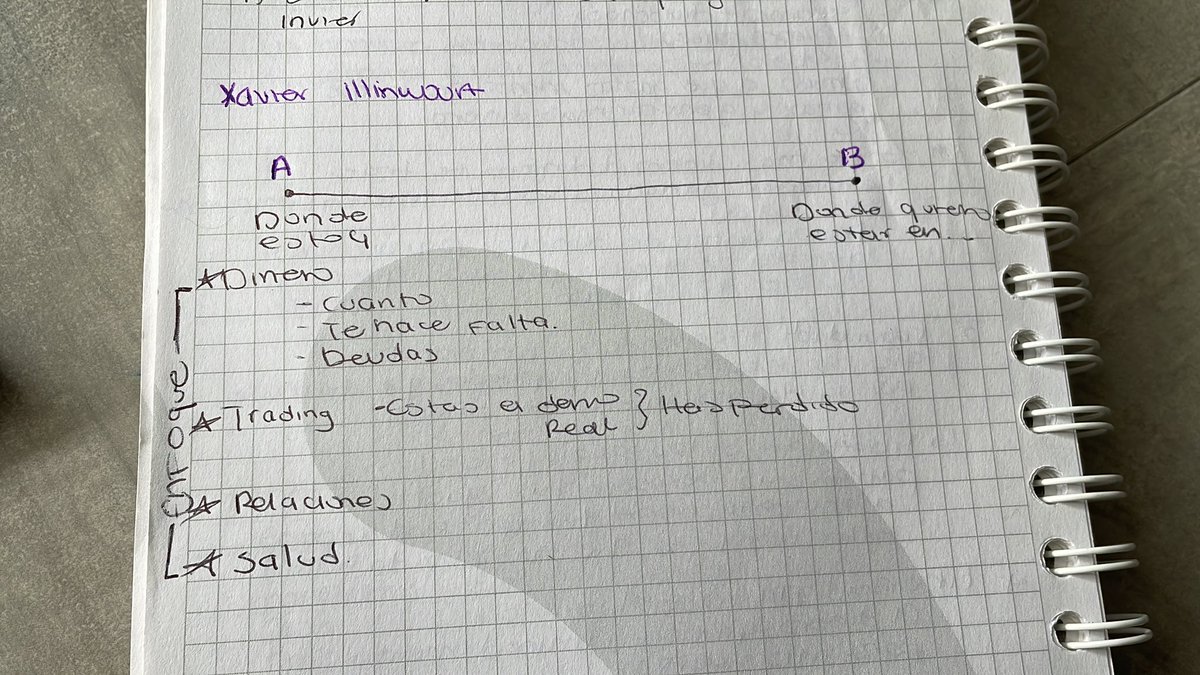 Invier
Xavier Illinwort
A
B
Donde
estoy
Donde quiero
estar en...
Dinero
- Cuanto
- Te hace Falta.
- Deudas
Enfoque
Trading - Estas el demo } Has Perdido
Real
Relaciones
Salud.